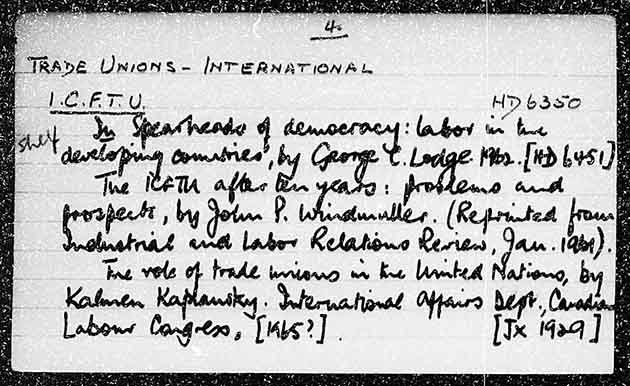 4.
TRADE UNIONS - INTERNATIONAL
I.C.F.T.U. HD6350
shelf In Spearheads of democracy: labor in the
developing countries, by George C. Lodge. 1962. [HD 6451]
The ICFTU after ten years: problems and
prospects, by John P. Windmuller. (Reprinted from
Industrial and Labor Relations Review, Jan. 1961).
The role of trade unions in the United Nations, by
Kalmen Kaplansky. International Affairs Dept., Canadian
Labour Congress, [1965?]. [JX 1929]